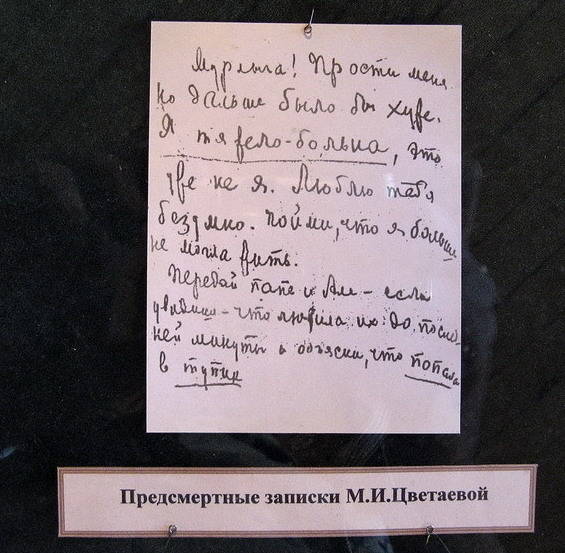 Мурлыга! Прости меня
но дальше было бы хуже.
Я тяжело-больна, это
уже не я. Люблю тебя
безумно. Пойми, что я больше
не могла жить.
Передай папе и Але – если
увидишь – что любила их до послед-
ней минуты и объясни, что попала
в тупик
Предсмертные записки М.И.Цветаевой